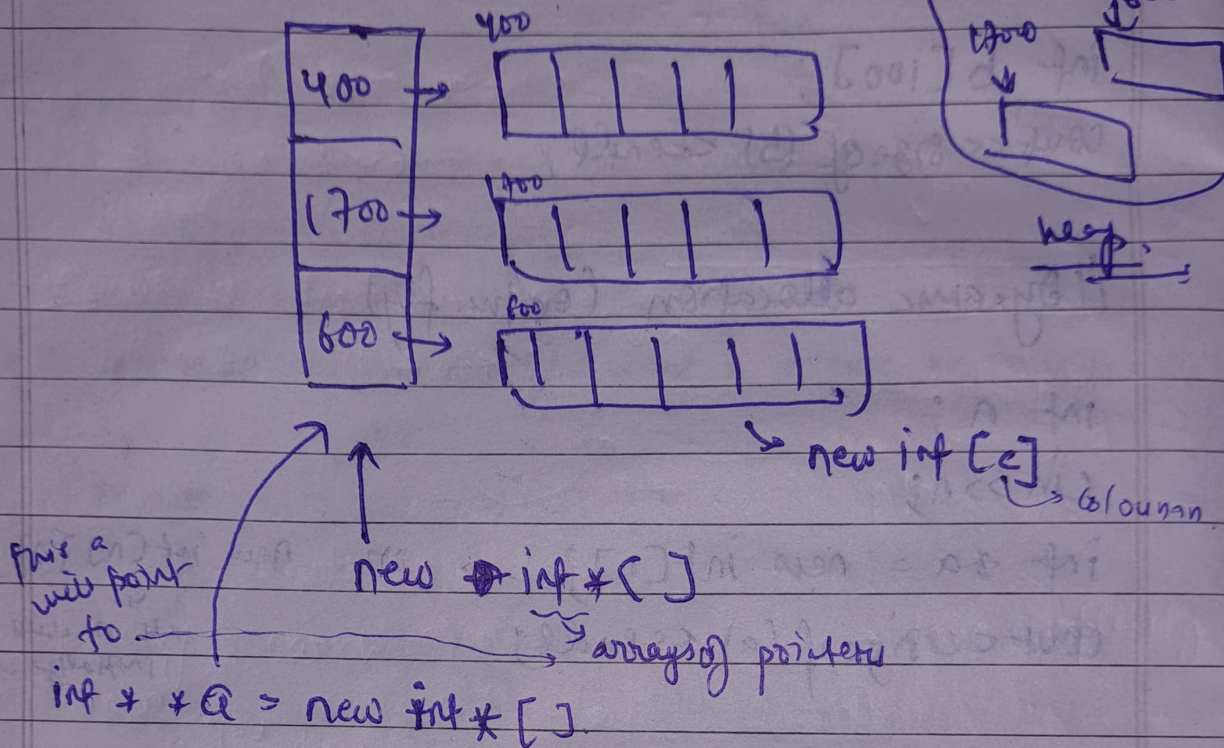 400
400 →
1700
1700 →
1700
heap
600
600 →
→ new int [c]
→ Colounan
this a
will point
to
new int * [ ]
→ arrays of pointers
int * * a = new int * [ ]